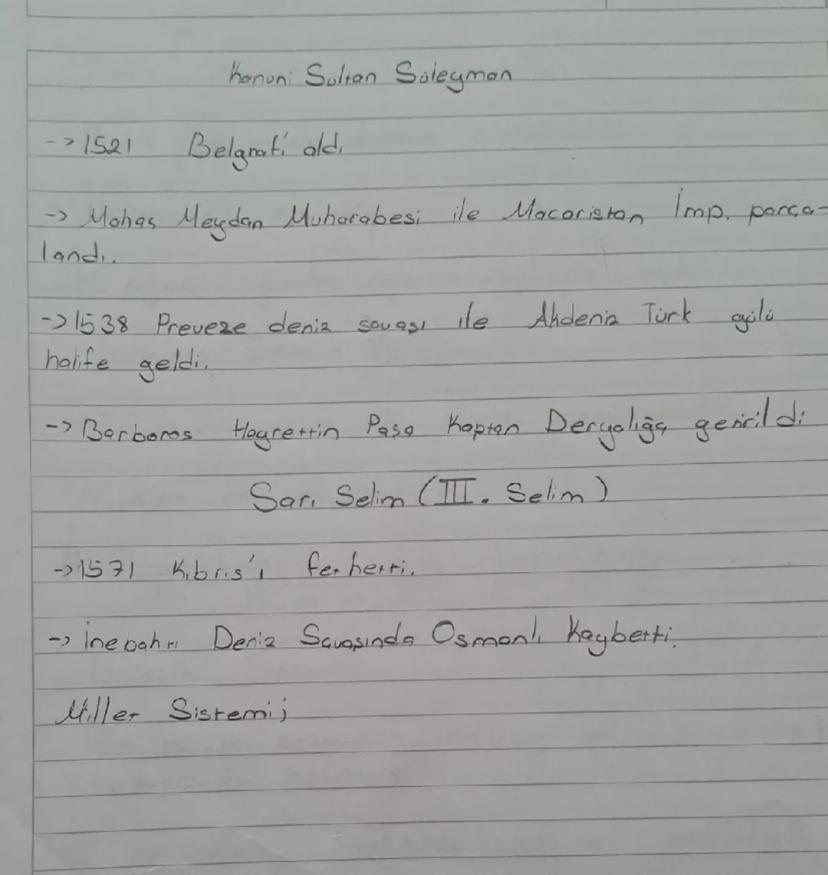 Kanuni Sultan Süleyman
-> 1521 Belgrat'ı aldı
-> Mohaç Meydan Muharabesi ile Macaristan İmp. parça-
landı.
-> 1538 Preveze deniz savaşı ile Akdeniz Türk gölü
halife geldi.
-> Barboros Hayrettin Paşa Kaptan Deryalığa getirildi
Sarı Selim (III. Selim)
-> 1571 Kıbrıs'ı fethetti.
-> İnebahtı Deniz Savaşında Osmanlı Kaybetti.
Millet Sistemi;